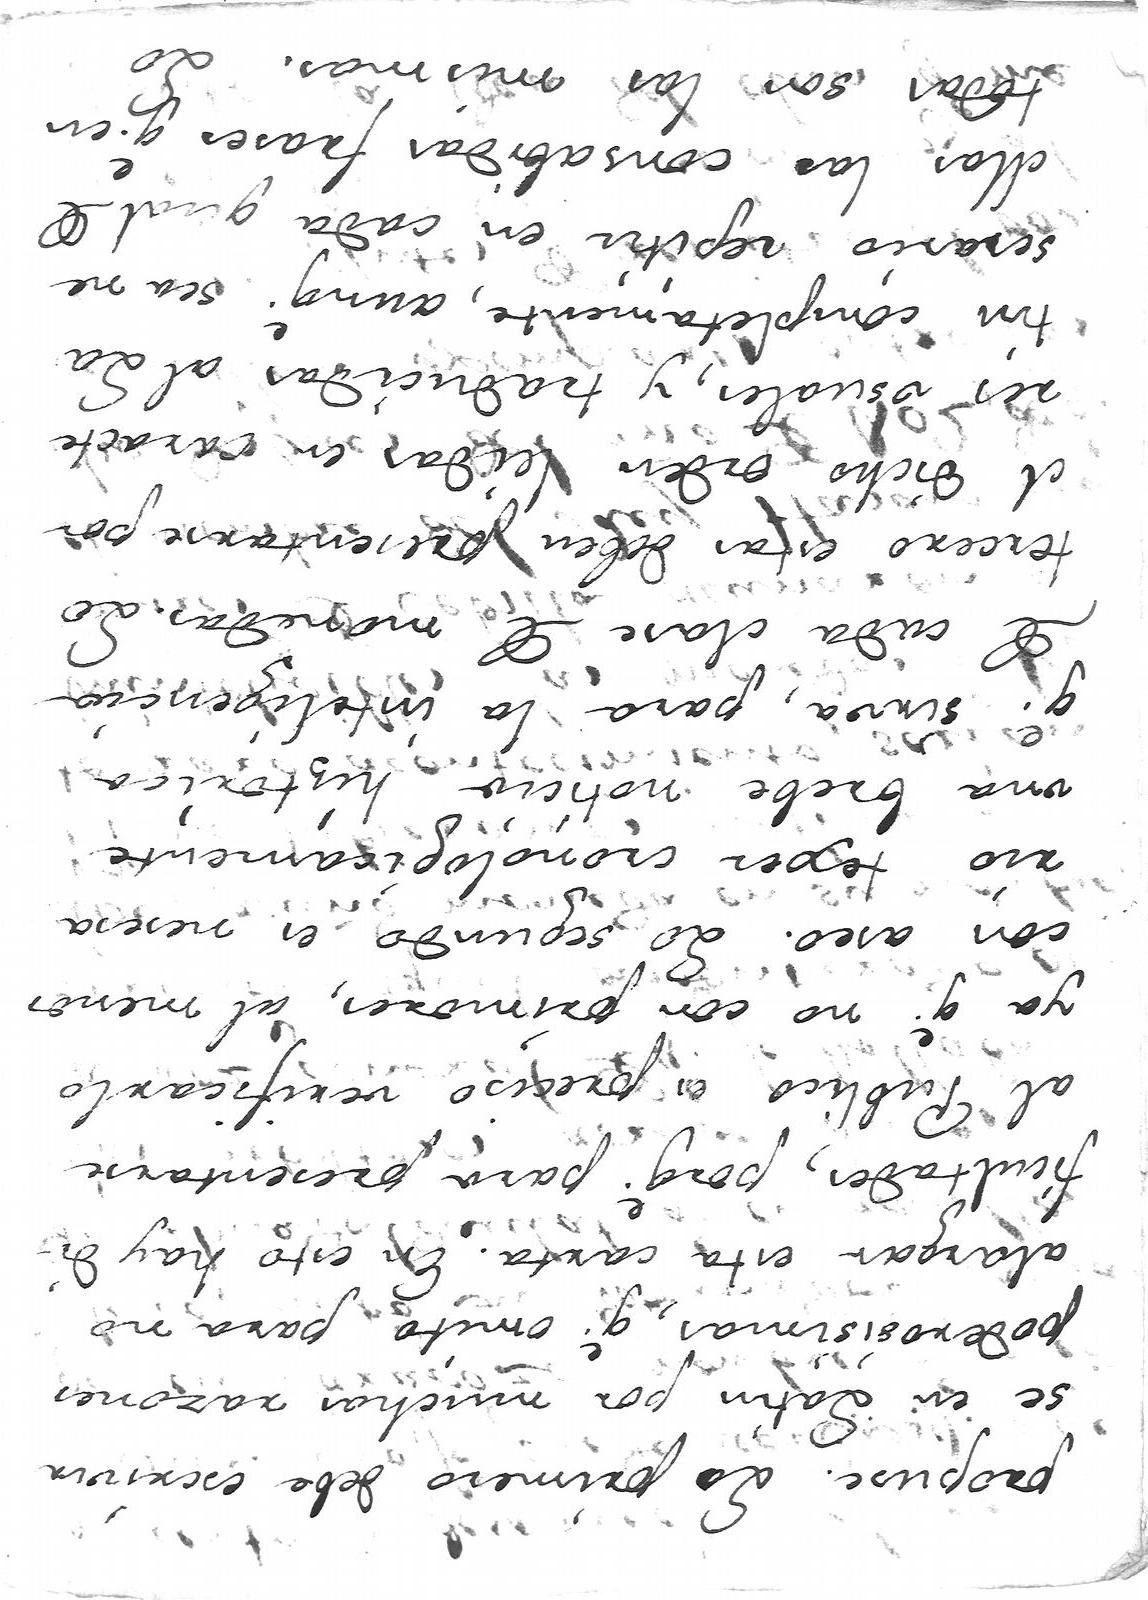 propuse. Lo primero debe escrivir
se en Latin por muchas razones
poderosisimas, q.e omito para no
alargar esta carta. En esto hay di-
ficultades, porq.e para presentarse
al Publico es preciso verificarlo
ya q.e no con primores, al menos
con aseo. Lo segundo es nesesa
rio texer cronologicamente
una brebe noticia historica
q.e sirva, para la inteligencia
de cada clase de monedas. Lo
tercero estas deben presentarse por
el dicho orden leidas en caracte
res usuales, y traducidas al La
tin completamente, aunq.e sea ne
sesario repitir en cada gual de
ellas las consabidas frases q.e en
todas son las mismas. Lo